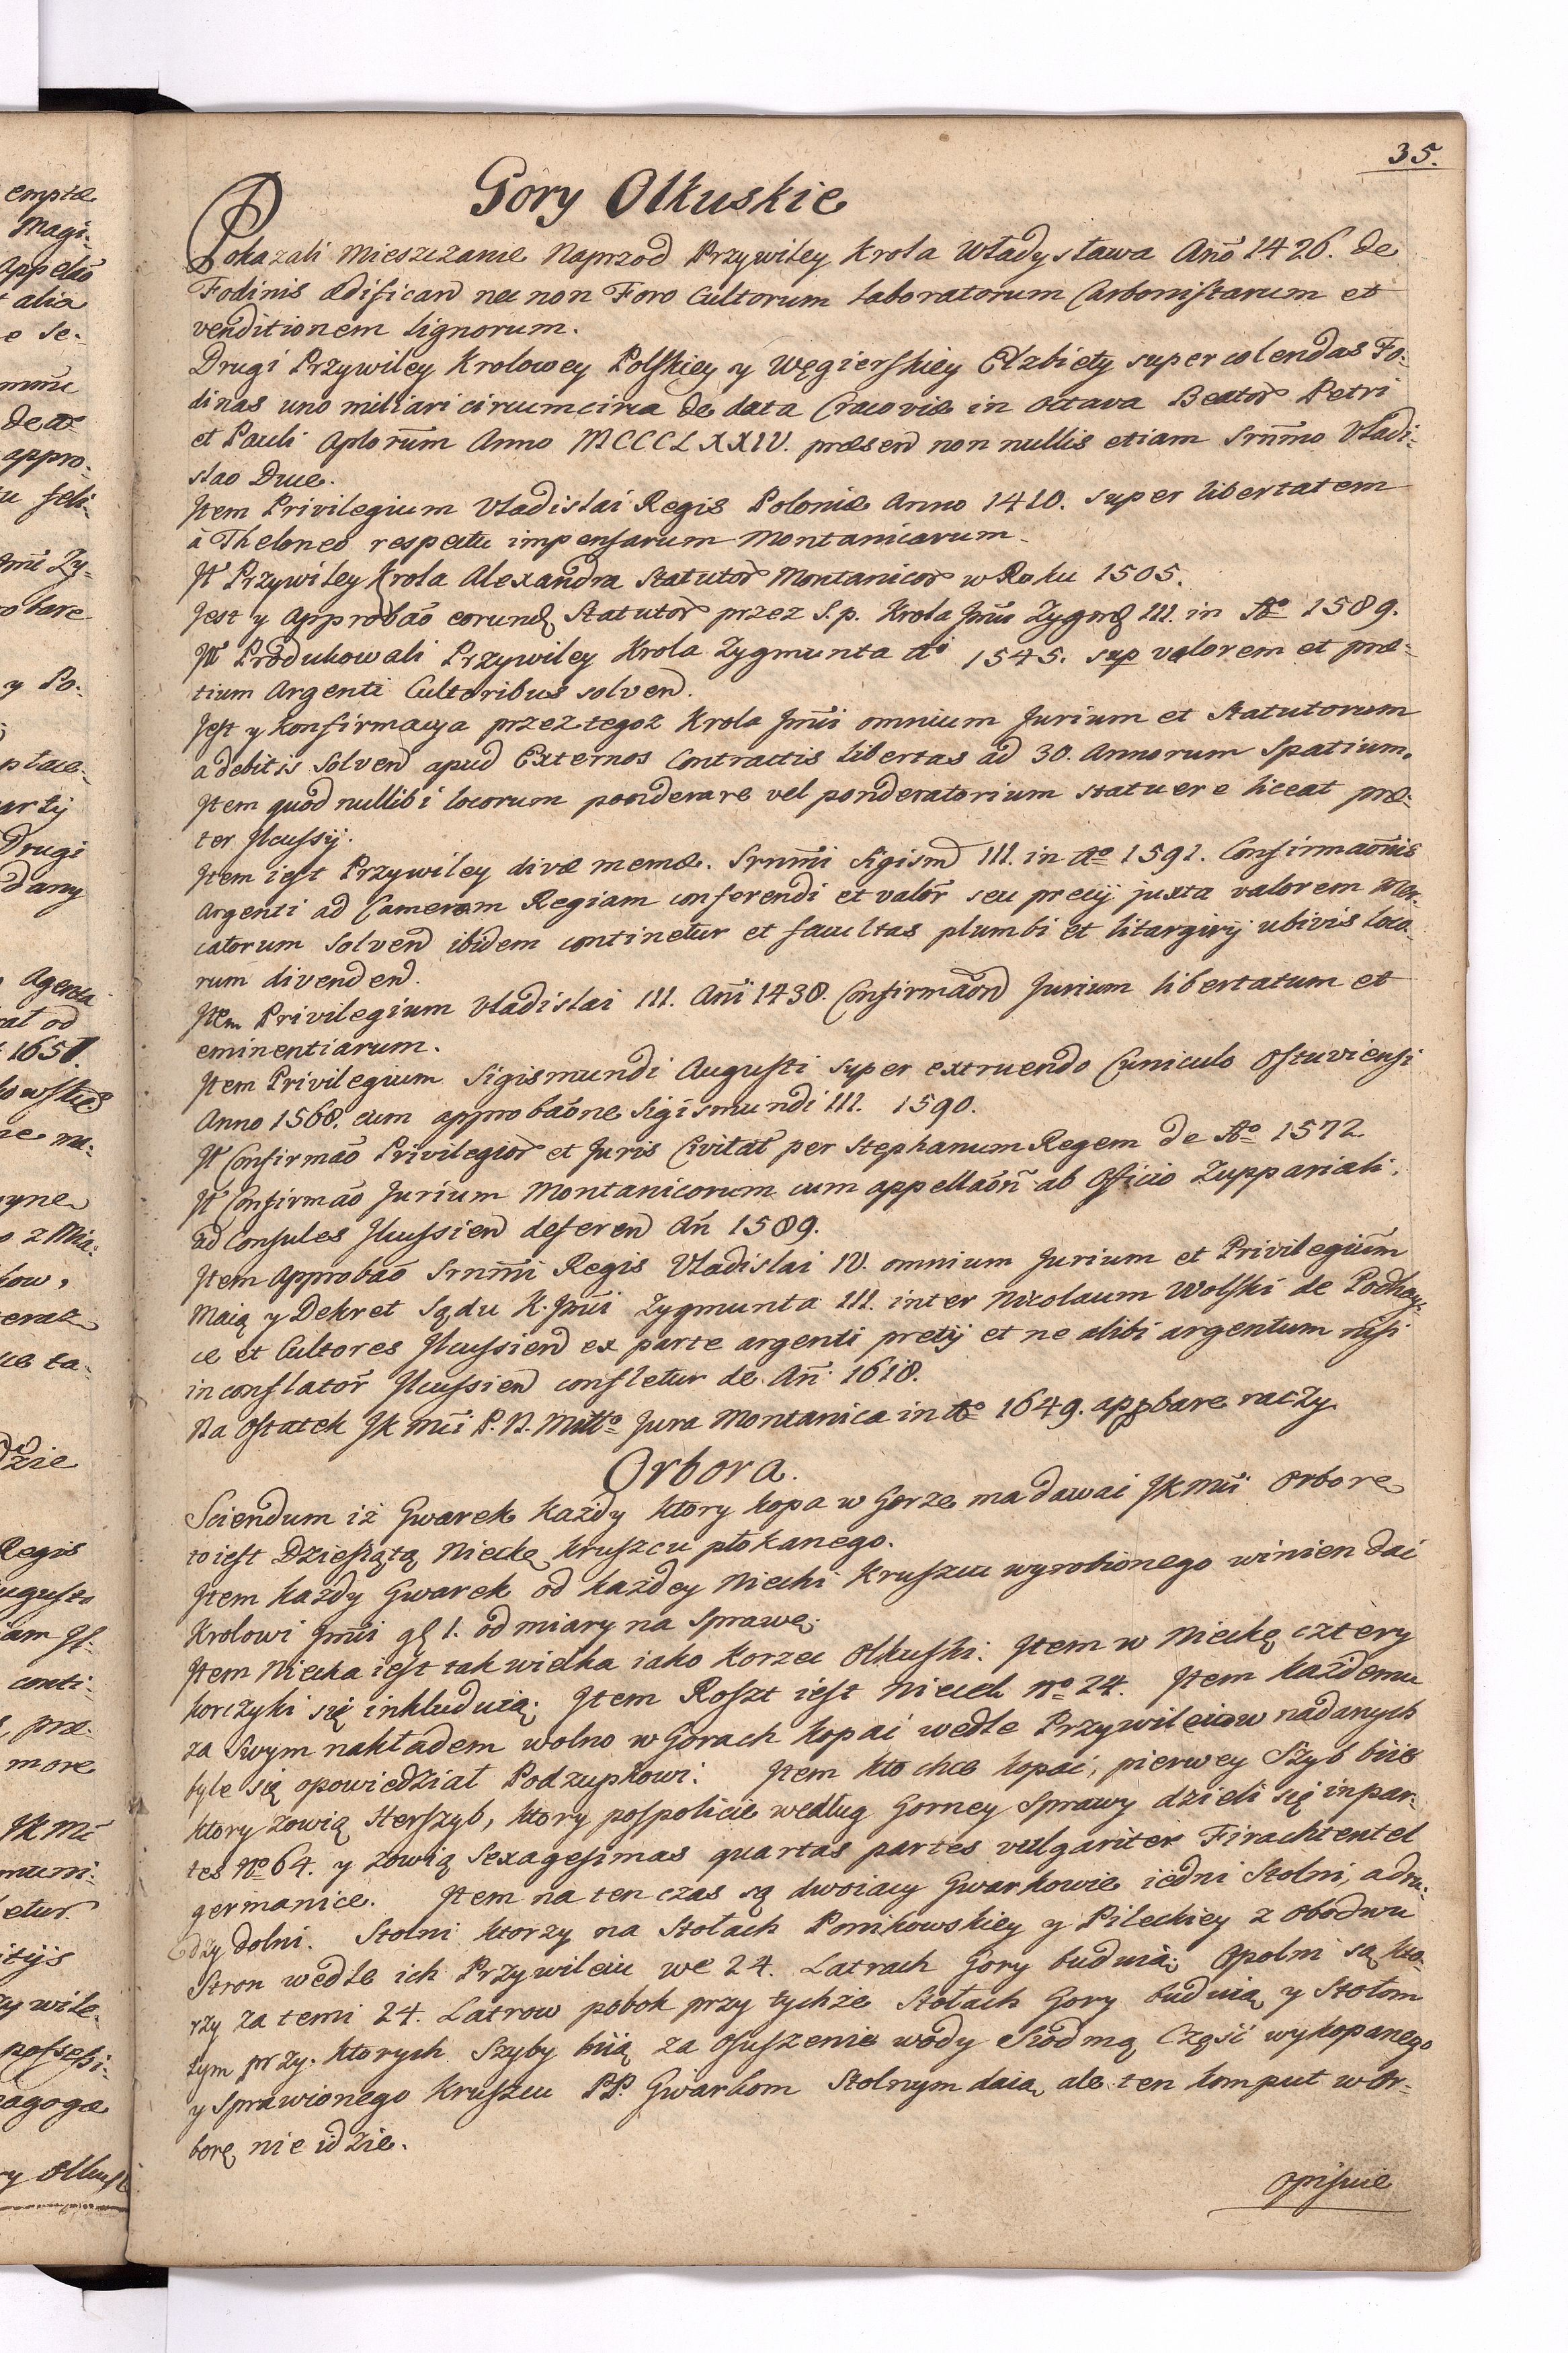 35.
Gory Olkuskie
Pokazali Mieszczanie Naprzod Przywiley Krola Władysława Anõ 1426. de
Fodinis ædificand nec non Foro Cultorum Laboratorum Carbonistarum et
venditionem lignorum.
Drugi Przywiley Krolowey Polskiey y Węgierskiey Elzbiety super colendas Fo:
dinas uno miliari circumcirca de data Cracoviæ in Octava Beator Petri
et Pauli Aplorum Anno MCCCLXXIV. præsend non nullis etiam Srñmo Vladi:
slao Duce.
Item Privilegium Vladislai Regis Poloniæ Anno 1410. super libertatem
à Theloneo respectu impensarum Montanicarum.
It Przywiley Krola Alexandra Statutor Montanicor w Roku 1505.
Jest y Approbaõ eorund Statutor przez S. p. Krola Jmći Zygm III. in Aº 1589.
It Produkowali Przywiley Krola Zygmunta Aº 1545. sup valorem et præ:
tium Argenti Cultoribus solvend.
Jest y Konfirmacya przez tegoz Krola Jmći omnium Jurium et Statutorum
a debitis solvend apud Externos Contractis libertas ad 30. Annorum Spatium.
Item quod nullibi locorum ponderare vel ponderatorium statuere liceat præ:
ter Ilcussij.
Item iest Przywiley divæ memæ. Srñmi Sigismd III. in Aº 1591. Confirmaõnis
Argenti ad Cameram Regiam conferendi et valor seu precij juxta valorem Mer:
catorum solvend ibidem continetur et facultas plumbi et litargirij ubivis loco:
rum divendend.
Item Privilegium Vladislai III. Añi 1438. Confirmaõn Jurium libertatum et
eminentiarum.
Item Privilegium Sigismundi Augusti super extruendo Cuniculo Ostuviensi
Anno 1568. cum approbaõne Sigismundi III. 1590.
It Confirmaõ Privilegior et Juris Civitat per Stephanum Regem de Aº 1572
It Confirmaõ Jurium Montanicorum cum appellaõñ ab Officio Zuppariali,
ad Consules Ilcussiend deferend Añ 1589.
Item Approbaõ Srñmi Regis Vladislai IV. omnium Jurium et Privilegiũm
Maią y Dekret Sądu K. Jmći Zygmunta III. inter Nicolaum Wolski de Podhay:
ce et Cultores Ilcussiend ex parte argenti pretij et ne alibi argentum nisi
in conflator Ilcussiend confletur de Añ 1618.
Na Ostatek JK Mći P. N. Mittº Jura Montanica in Aº 1649. appbare raczy.
Orbora.
Sciendum iż Gwarek każdy ktory kopa w Gorze ma dawać JKMći Orbore
to iest Dziesiątą Nieckę kruszcu płokanego.
Item każdy Gwarek od każdey Niecki Kruszcu wyrobionego winien dać
Krolowi Jmći g 1. od miary na Sprawę.
Item Niecka iest tak wielka iako Korzec Olkuski. Item w Nieckę cztery
korczyki się inkluduią. Item Roszt iest Nieck Nº 24. Item każdemu
za swym nakładem wolno w Gorach kopać wedle Przywileiow nadanych
byle się opowiedział Podzupkowi. Item kto chce kopać, pierwey Szyb biie
ktory zowią Herszyb, ktory pospolicie według Gorney Sprawy dzieli się in par:
tes Nº 64. y zowią Sexagesimas quartas partes vulgariter Firachtentel
germanice. Item na ten czas są dwoiacy Gwarkowie iedni Stolni, a dru:
dzy dolni. Stolni ktorzy na Stołach Ponikowskiey y Pileckiey z obodwu
Stron wedle ich Przywileiu we 24. Latrach Gory buduią. Opolni są kto:
rzy za temi 24. Latrow pobok przy tychże Stołach Gory buduią y Stołom
tym przy ktorych Szyby biią za Osuszenie wody Siodmą Część wykopanego
y Sprawionego Kruszcu PP. Gwarkom Stolnym daią, ale ten komput w Or:
borę nie idzie.
Opisuie